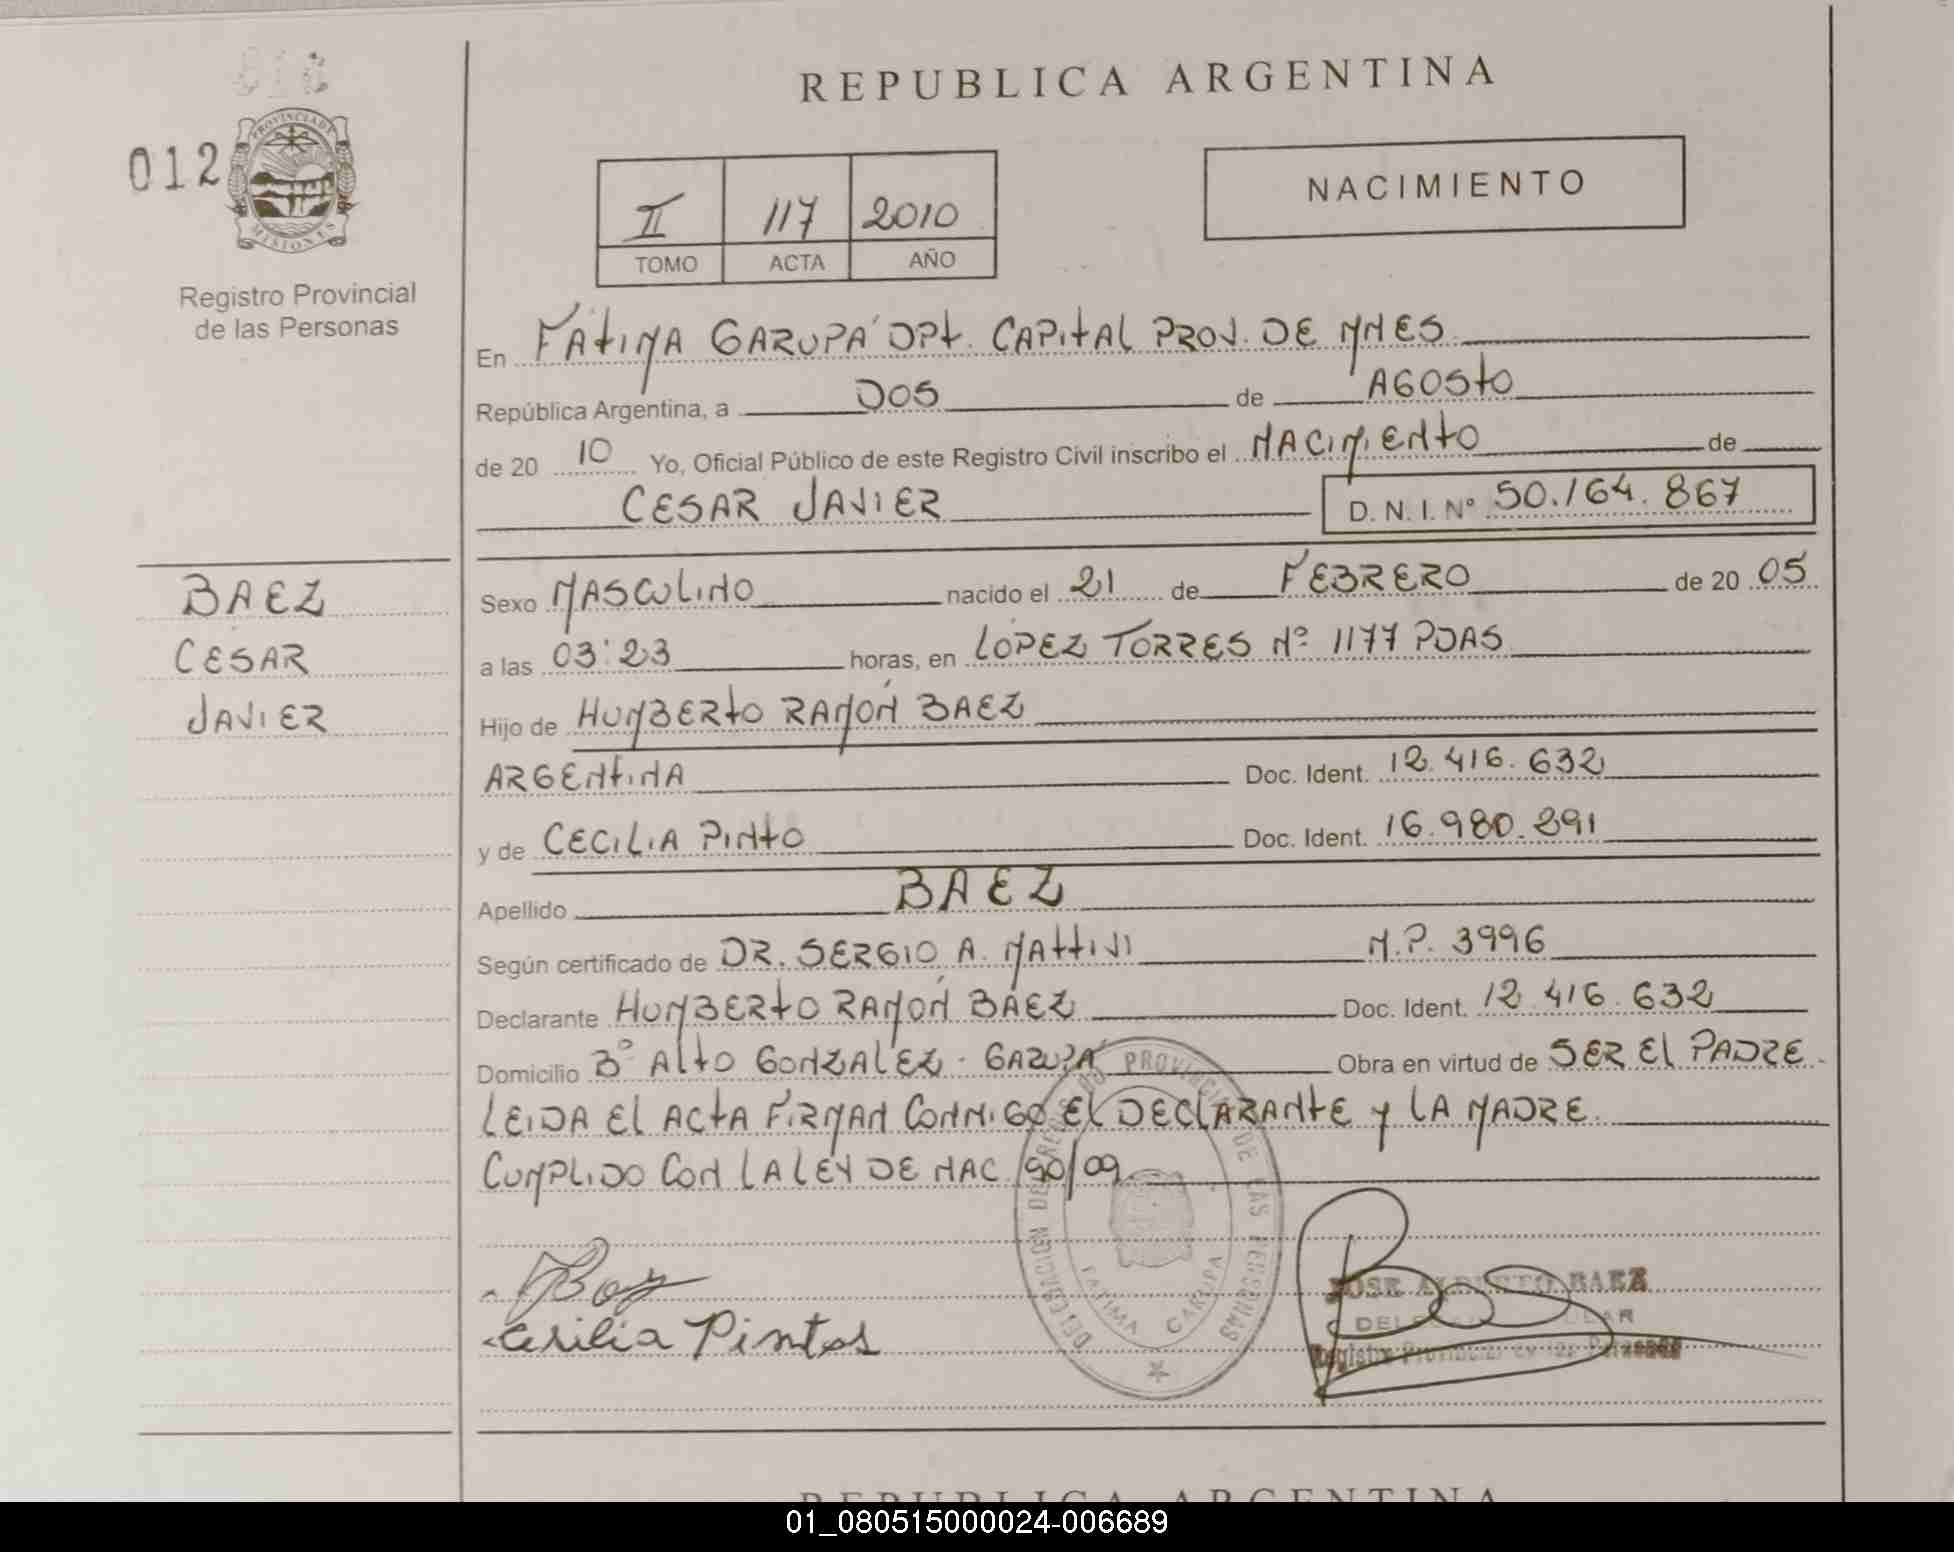 REPUBLICA ARGENTINA
012
PROVINCIA DE
MISIONES
Registro Provincial
de las Personas
II 117 2010
TOMO ACTA AÑO
NACIMIENTO
En FÁTIMA GARUPÁ DPT. CAPITAL PROV. DE MNES
República Argentina, a DOS de AGOSTO
de 20 10 Yo, Oficial Público de este Registro Civil inscribo el NACIMIENTO de
CESAR JAVIER D. N. I. Nº 50.164.867
BAEZ
CESAR
JAVIER
Sexo MASCULINO nacido el 21 de FEBRERO de 20 05
a las 03:23 horas, en LÓPEZ TORRES Nº 1177 PDAS
Hijo de HUMBERTO RAMÓN BAEZ
ARGENTINA Doc. Ident. 12.416.632
y de CECILIA PINTO Doc. Ident. 16.980.891
Apellido BAEZ
Según certificado de DR. SERGIO A. MATTIVI M.P. 3996
Declarante HUMBERTO RAMÓN BÁEZ Doc. Ident. 12.416.632
Domicilio Bº ALTO GONZALEZ - GARUPÁ Obra en virtud de SER EL PADRE.
LEIDA EL ACTA FIRMAN CONMIGO EL DECLARANTE Y LA MADRE.
CUMPLIDO CON LA LEY DE NAC. 90/09.
DELEGACION DEL REGISTRO PROVINCIAL DE LAS PERSONAS
FATIMA GARUPA
Cecilia Pintos
JOSE ALBERTO BAEZ
Registro Provincial de las Personas
REPUBLICA ARGENTINA
01_080515000024-006689